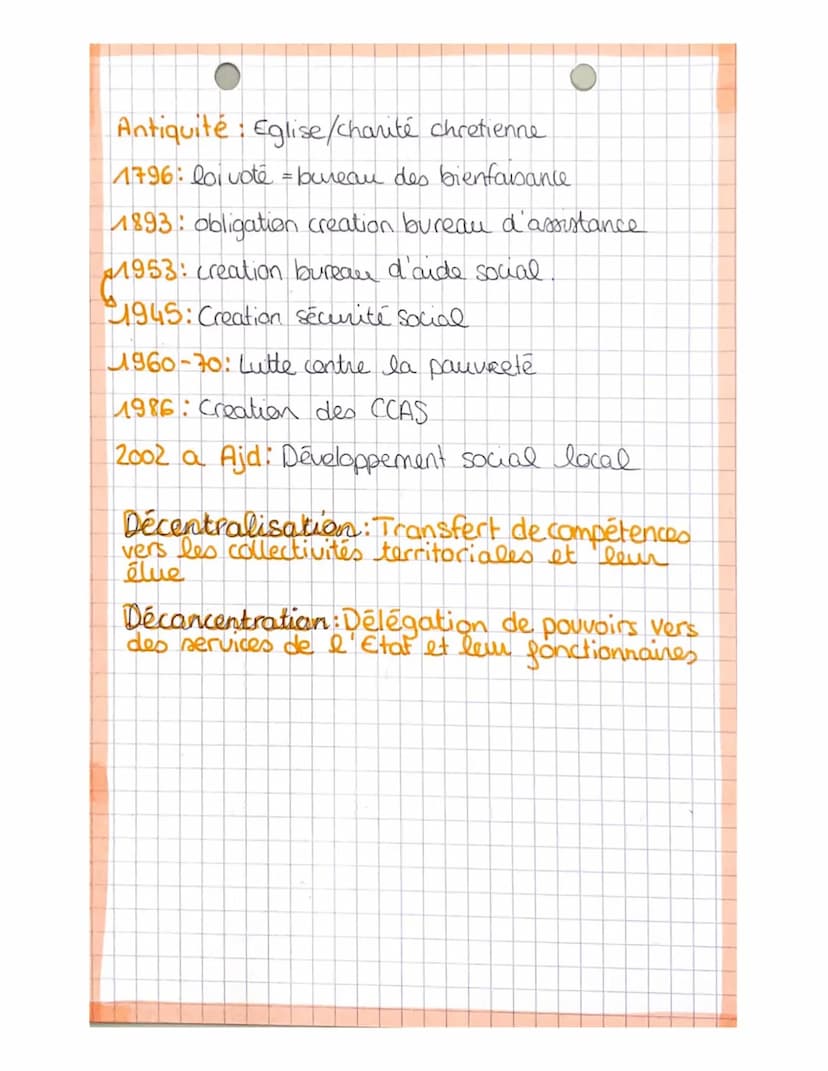 Antiquité : Eglise/charité chretienne
1796: loi voté = bureau des bienfaisance
1893: obligation creation bureau d'assistance
1953: creation bureau d'aide social.
1945: Creation sécurité social
1960-70: Lutte contre la pauvreté
1986: Creation des CCAS
2002 a Ajd: Développement social local
Décentralisation: Transfert de compétences
vers les collectivités territoriales et leur
élue
Déconcentration: Délégation de pouvoirs vers
des services de l'Etat et leur fonctionnaires